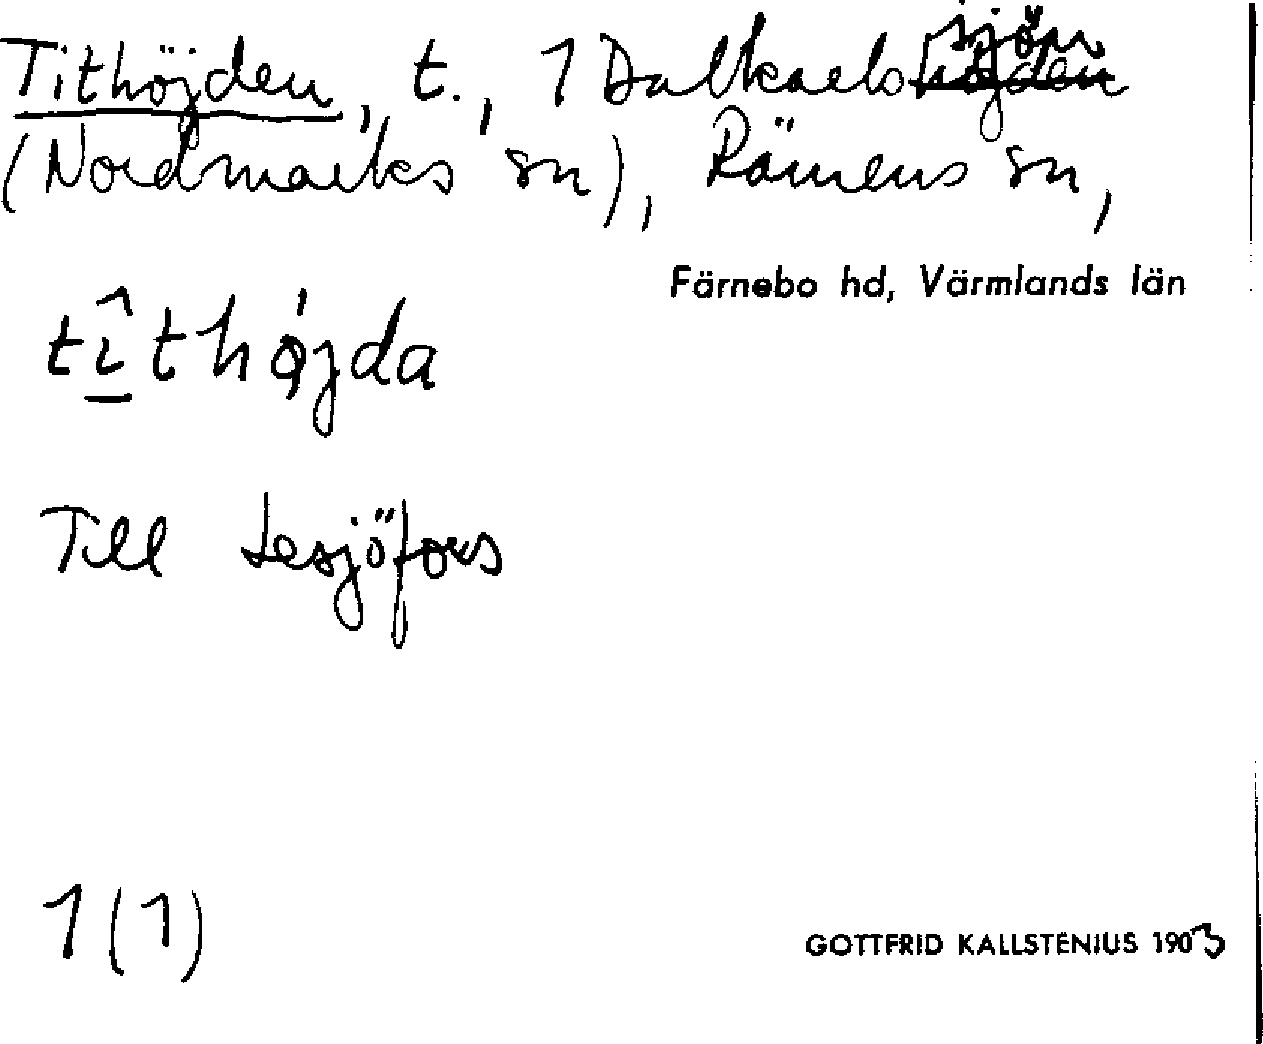 Tithöjden, t., 1 Dalkarlssjön
(Nordmarks sn), Rämens sn,
Färnebo hd, Värmlands län
tîthøjda
Till Lesjöfors
1(1)
GOTTFRID KALLSTENIUS 1903